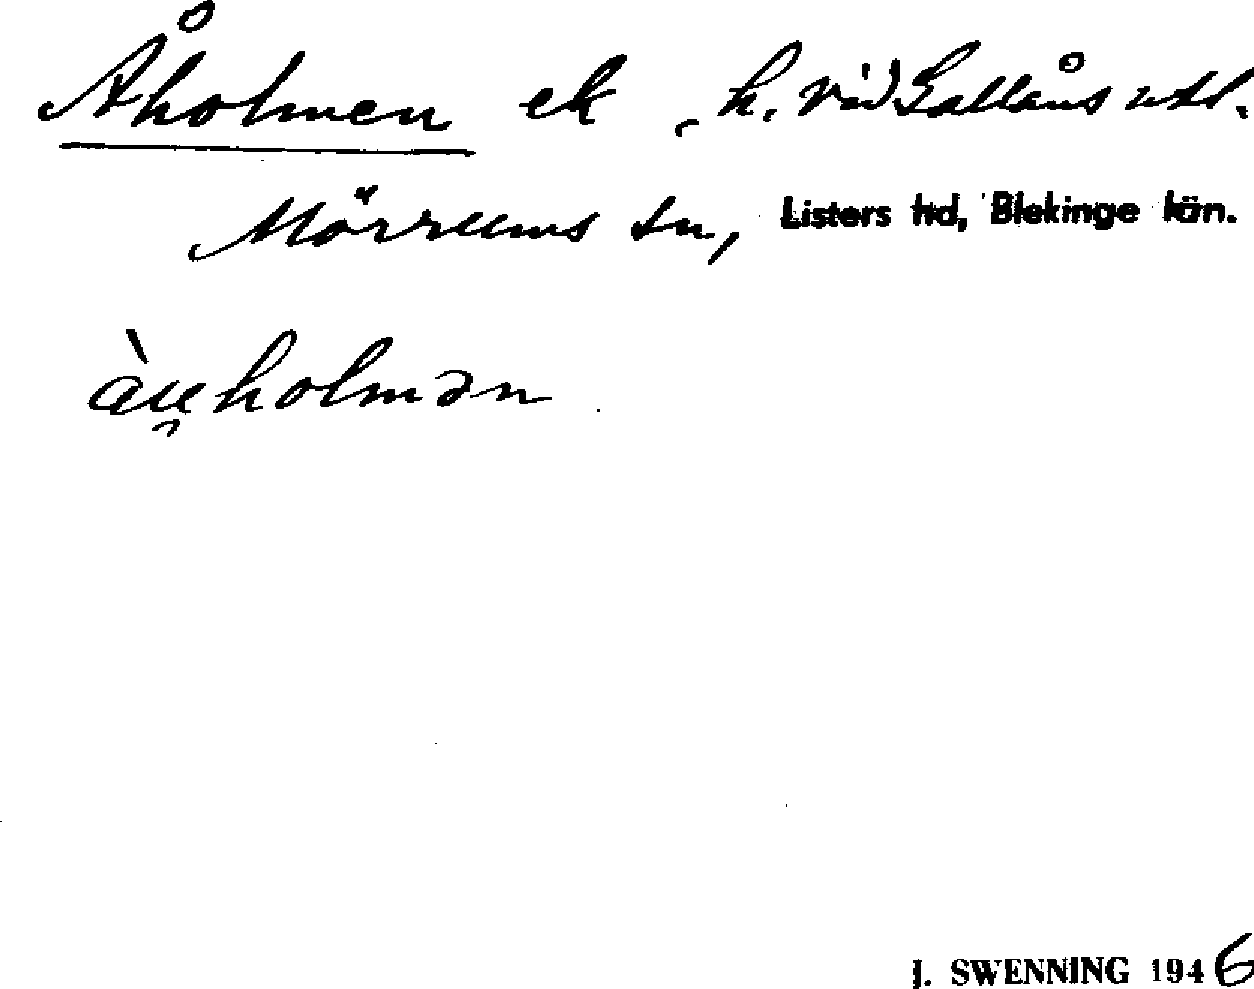 Åholmen ek , h. vid Gallåns utl.
Mörrums sn, Listers hd, Blekinge län.
àu̯holmən
J. SWENNING 1946